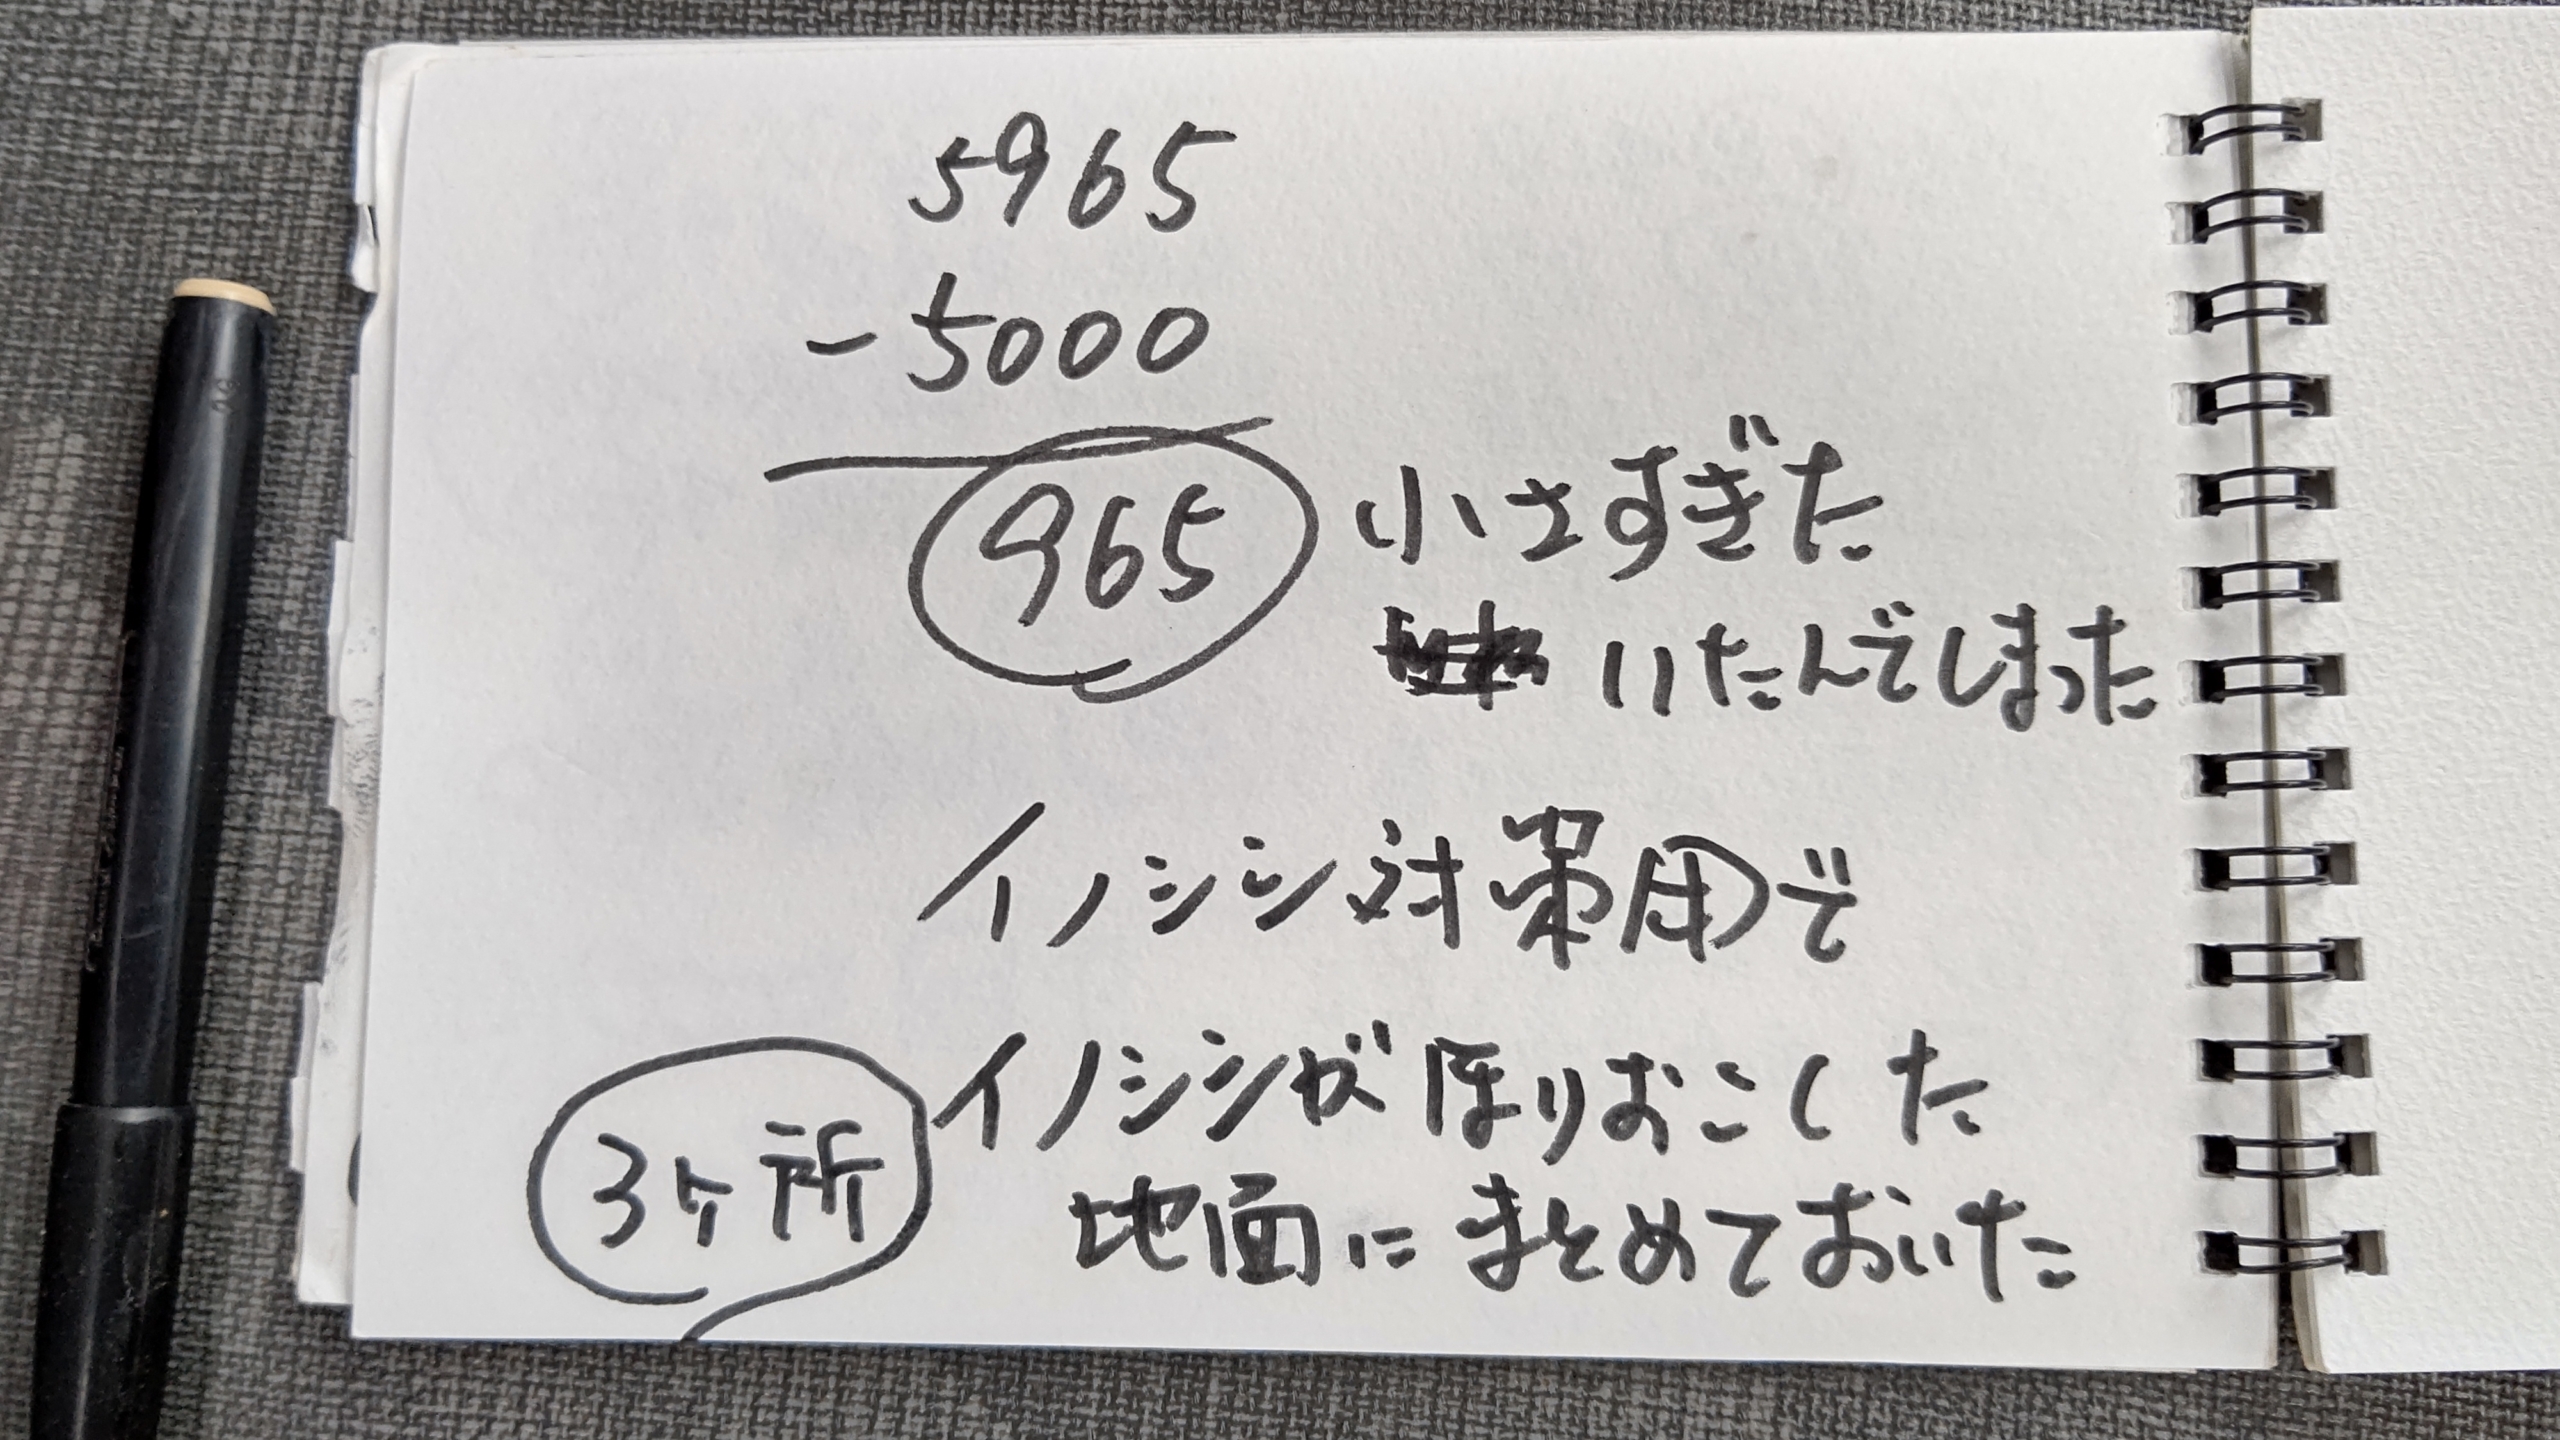 5965
-5000
965 小さすぎた
いたんでしまった
イノシシ対策用で
イノシシがほりおこした
3ヶ所 地面にまとめておいた